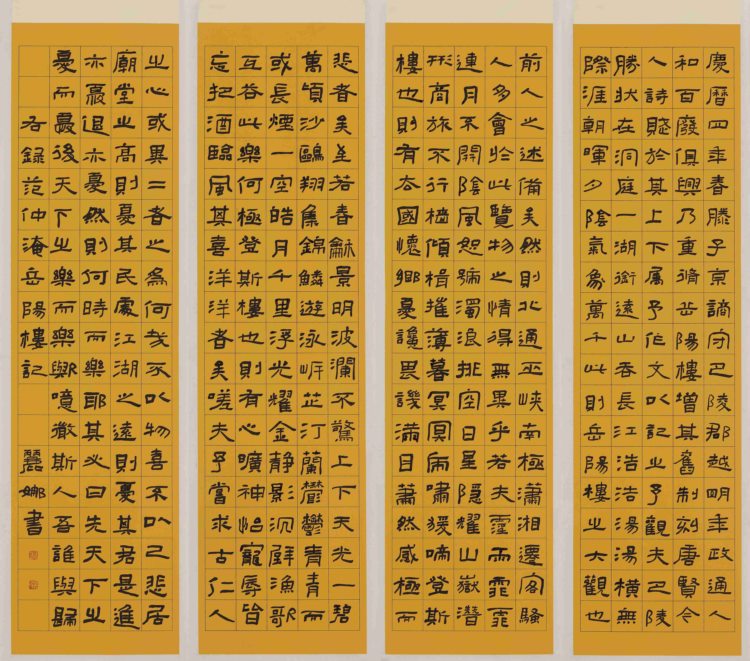 慶曆四年春滕子京謫守巴陵郡越明年政通人
和百廢俱興乃重脩岳陽樓增其舊制刻唐賢今
人詩賦於其上下屬予作文以記之予觀夫巴陵
勝狀在洞庭一湖銜遠山吞長江浩浩湯湯橫無
際涯朝暉夕陰氣象萬千此則岳陽樓之大觀也
前人之述備矣然則北通巫峽南極瀟湘遷客騷
人多會於此覽物之情得無異乎若夫霪雨霏霏
連月不開陰風怒號濁浪排空日星隱耀山嶽潛
形商旅不行檣傾楫摧薄暮冥冥虎嘯猨啼登斯
樓也則有去國懷鄉憂讒畏譏滿目蕭然感極而
悲者矣至若春龢景明波瀾不驚上下天光一碧
萬頃沙鷗翔集錦鱗遊泳岸芷汀蘭鬱鬱青青而
或長煙一空皓月千里浮光耀金靜影沉璧漁歌
互答此樂何極登斯樓也則有心曠神怡寵辱皆
忘把酒臨風其喜洋洋者矣嗟夫予嘗求古仁人
之心或異二者之為何哉不以物喜不以己悲居
廟堂之高則憂其民處江湖之遠則憂其君是進
亦憂退亦憂然則何時而樂耶其必曰先天下之
憂而憂後天下之樂而樂歟噫微斯人吾誰與歸
右錄范仲淹岳陽樓記 麗娜書